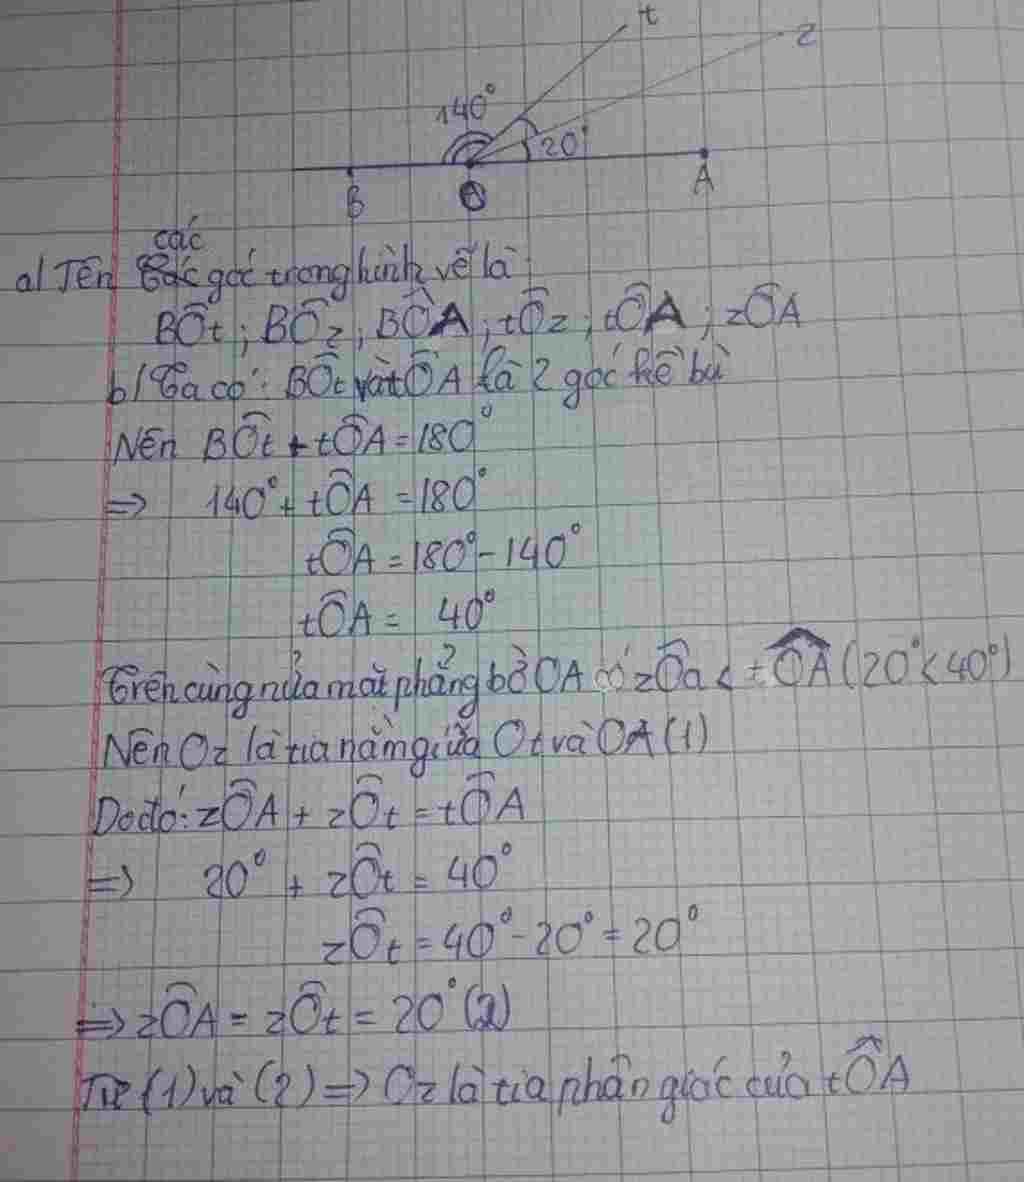 t
z
140°
20°
B
O
A
các
a/ Tên góc trong hình vẽ là:
BÔt; BÔz; BÔA; tÔz; tÔA; zÔA
b/ Ta có: BÔt và tÔA là 2 góc kề bù
Nên BÔt + tÔA = 180°
=> 140° + tÔA = 180°
tÔA = 180° - 140°
tÔA = 40°
Trên cùng nửa mặt phẳng bờ OA có zÔa < tÔA (20° < 40°)
Nên Oz là tia nằm giữa Ot và OA (1)
Do đó: zÔA + zÔt = tÔA
=> 20° + zÔt = 40°
zÔt = 40° - 20° = 20°
=> zÔA = zÔt = 20° (2)
Từ (1) và (2) => Oz là tia phân giác của tÔA